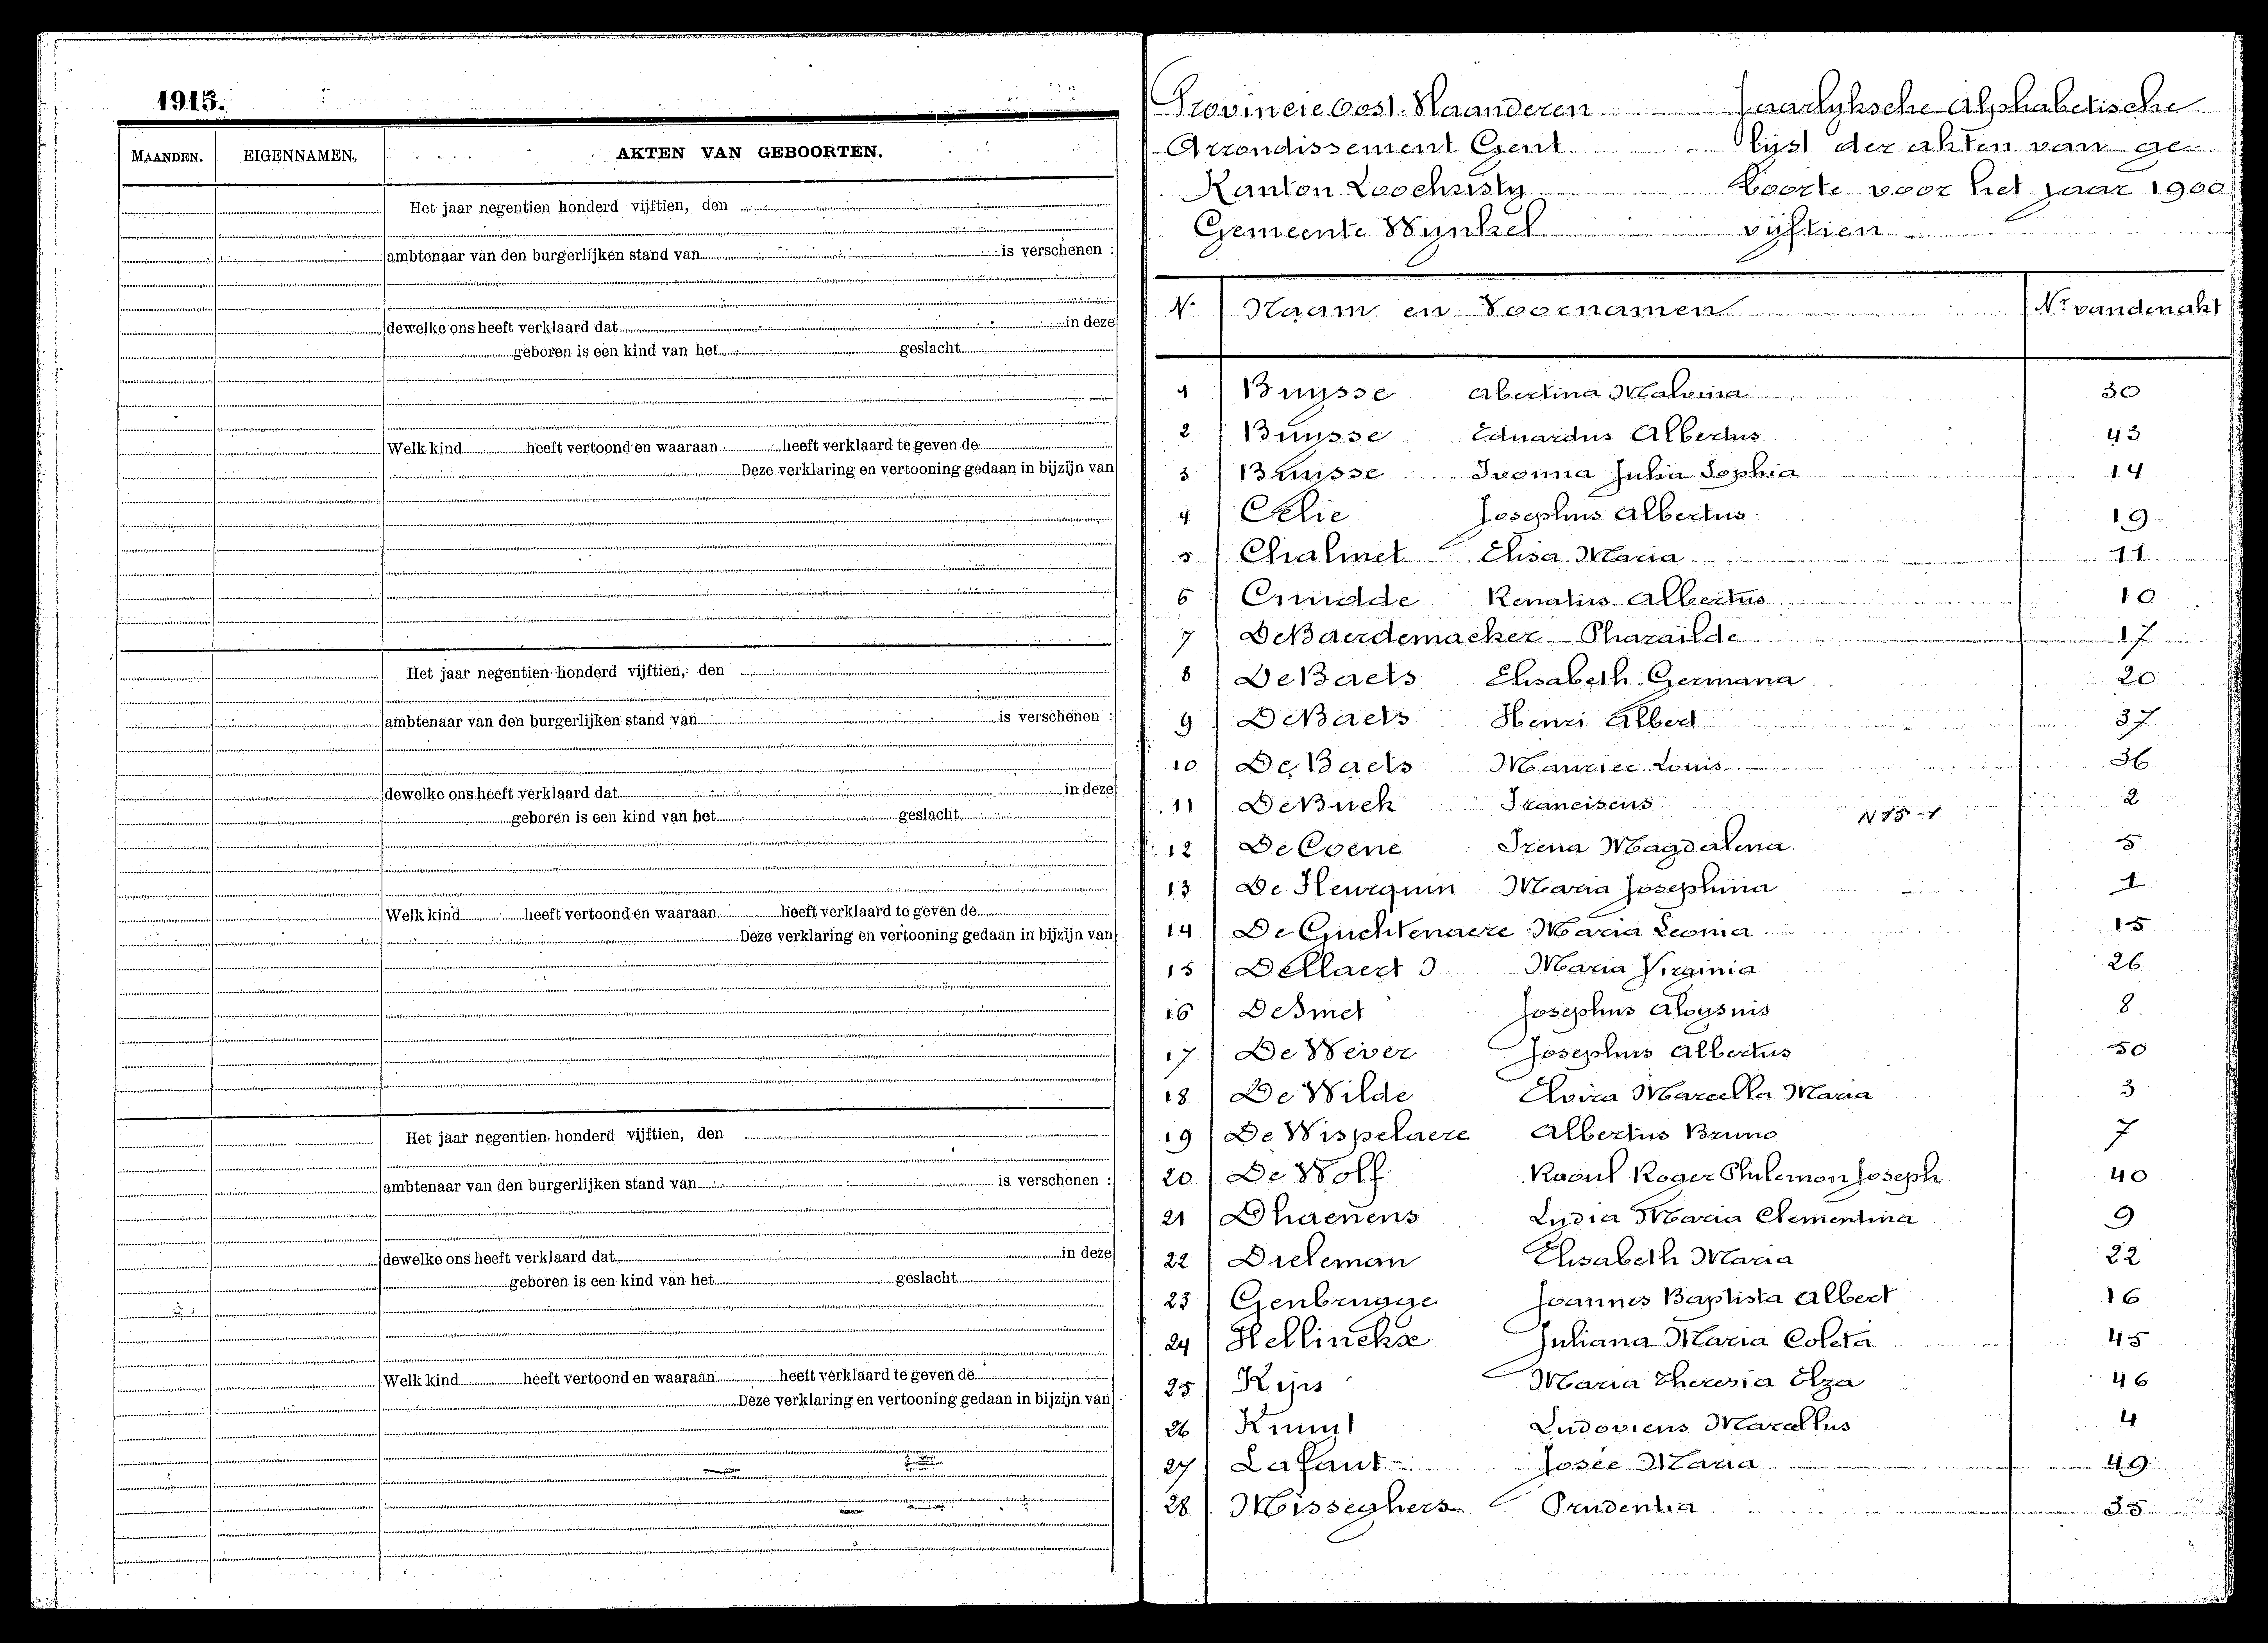 1915.
MAANDEN. EIGENNAMEN. AKTEN VAN GEBOORTEN.
Het jaar negentien honderd vijftien, den
ambtenaar van den burgerlijken stand van is verschenen :
dewelke ons heeft verklaard dat in deze
geboren is een kind van het geslacht
Welk kind heeft vertoond en waaraan heeft verklaard te geven de
Deze verklaring en vertooning gedaan in bijzijn van
Het jaar negentien honderd vijftien, den
ambtenaar van den burgerlijken stand van is verschenen :
dewelke ons heeft verklaard dat in deze
geboren is een kind van het geslacht
Welk kind heeft vertoond en waaraan heeft verklaard te geven de
Deze verklaring en vertooning gedaan in bijzijn van
Het jaar negentien honderd vijftien, den
ambtenaar van den burgerlijken stand van is verschenen :
dewelke ons heeft verklaard dat in deze
geboren is een kind van het geslacht
Welk kind heeft vertoond en waaraan heeft verklaard te geven de
Deze verklaring en vertooning gedaan in bijzijn van
Provincie Oost-Vlaanderen Jaarlyksche Alphabetische
Arrondissement Gent lijst der akten van ge
Kanton Loochristy boorte voor het jaar 1900
Gemeente Wynkel vijftien
N. Naam en Voornamen Nr van den akt
1 Buysse Albertina Malvina 30
2 Buysse Eduardus Albertus 43
3 Buysse Ivonna Julia Sophia 14
4 Celie Josephus Albertus 19
5 Chalmet Elisa Maria 11
6 Crudde Renatus Albertus 10
7 De Baerdemaeker Pharailde 17
8 De Baets Elisabeth Germana 20
9 De Baets Henri Albert 37
10 De Baets Maurice Louis 36
11 De Buck Franciscus 2
N 15-1
12 De Coene Irena Magdalena 5
13 De Fleurquin Maria Josephina 1
14 De Guchtenaere Maria Leonia 15
15 Dellaert Maria Virginia 26
16 De Smet Josephus Aloysius 8
17 De Wever Josephus Albertus 50
18 De Wilde Elvira Marcella Maria 3
19 De Wispelaere Albertus Bruno 7
20 De Wolf Raoul Roger Philemon Joseph 40
21 Dhaenens Lydia Maria Clementina 9
22 Dieleman Elisabeth Maria 22
23 Genbrugge Joannes Baptista Albert 16
24 Hellinckx Juliana Maria Coleta 45
25 Kips Maria Theresia Elza 46
26 Ludovicus Marcellus 4
27 Lafaut Josée Maria 49
28 Misseghers Prudentia 35